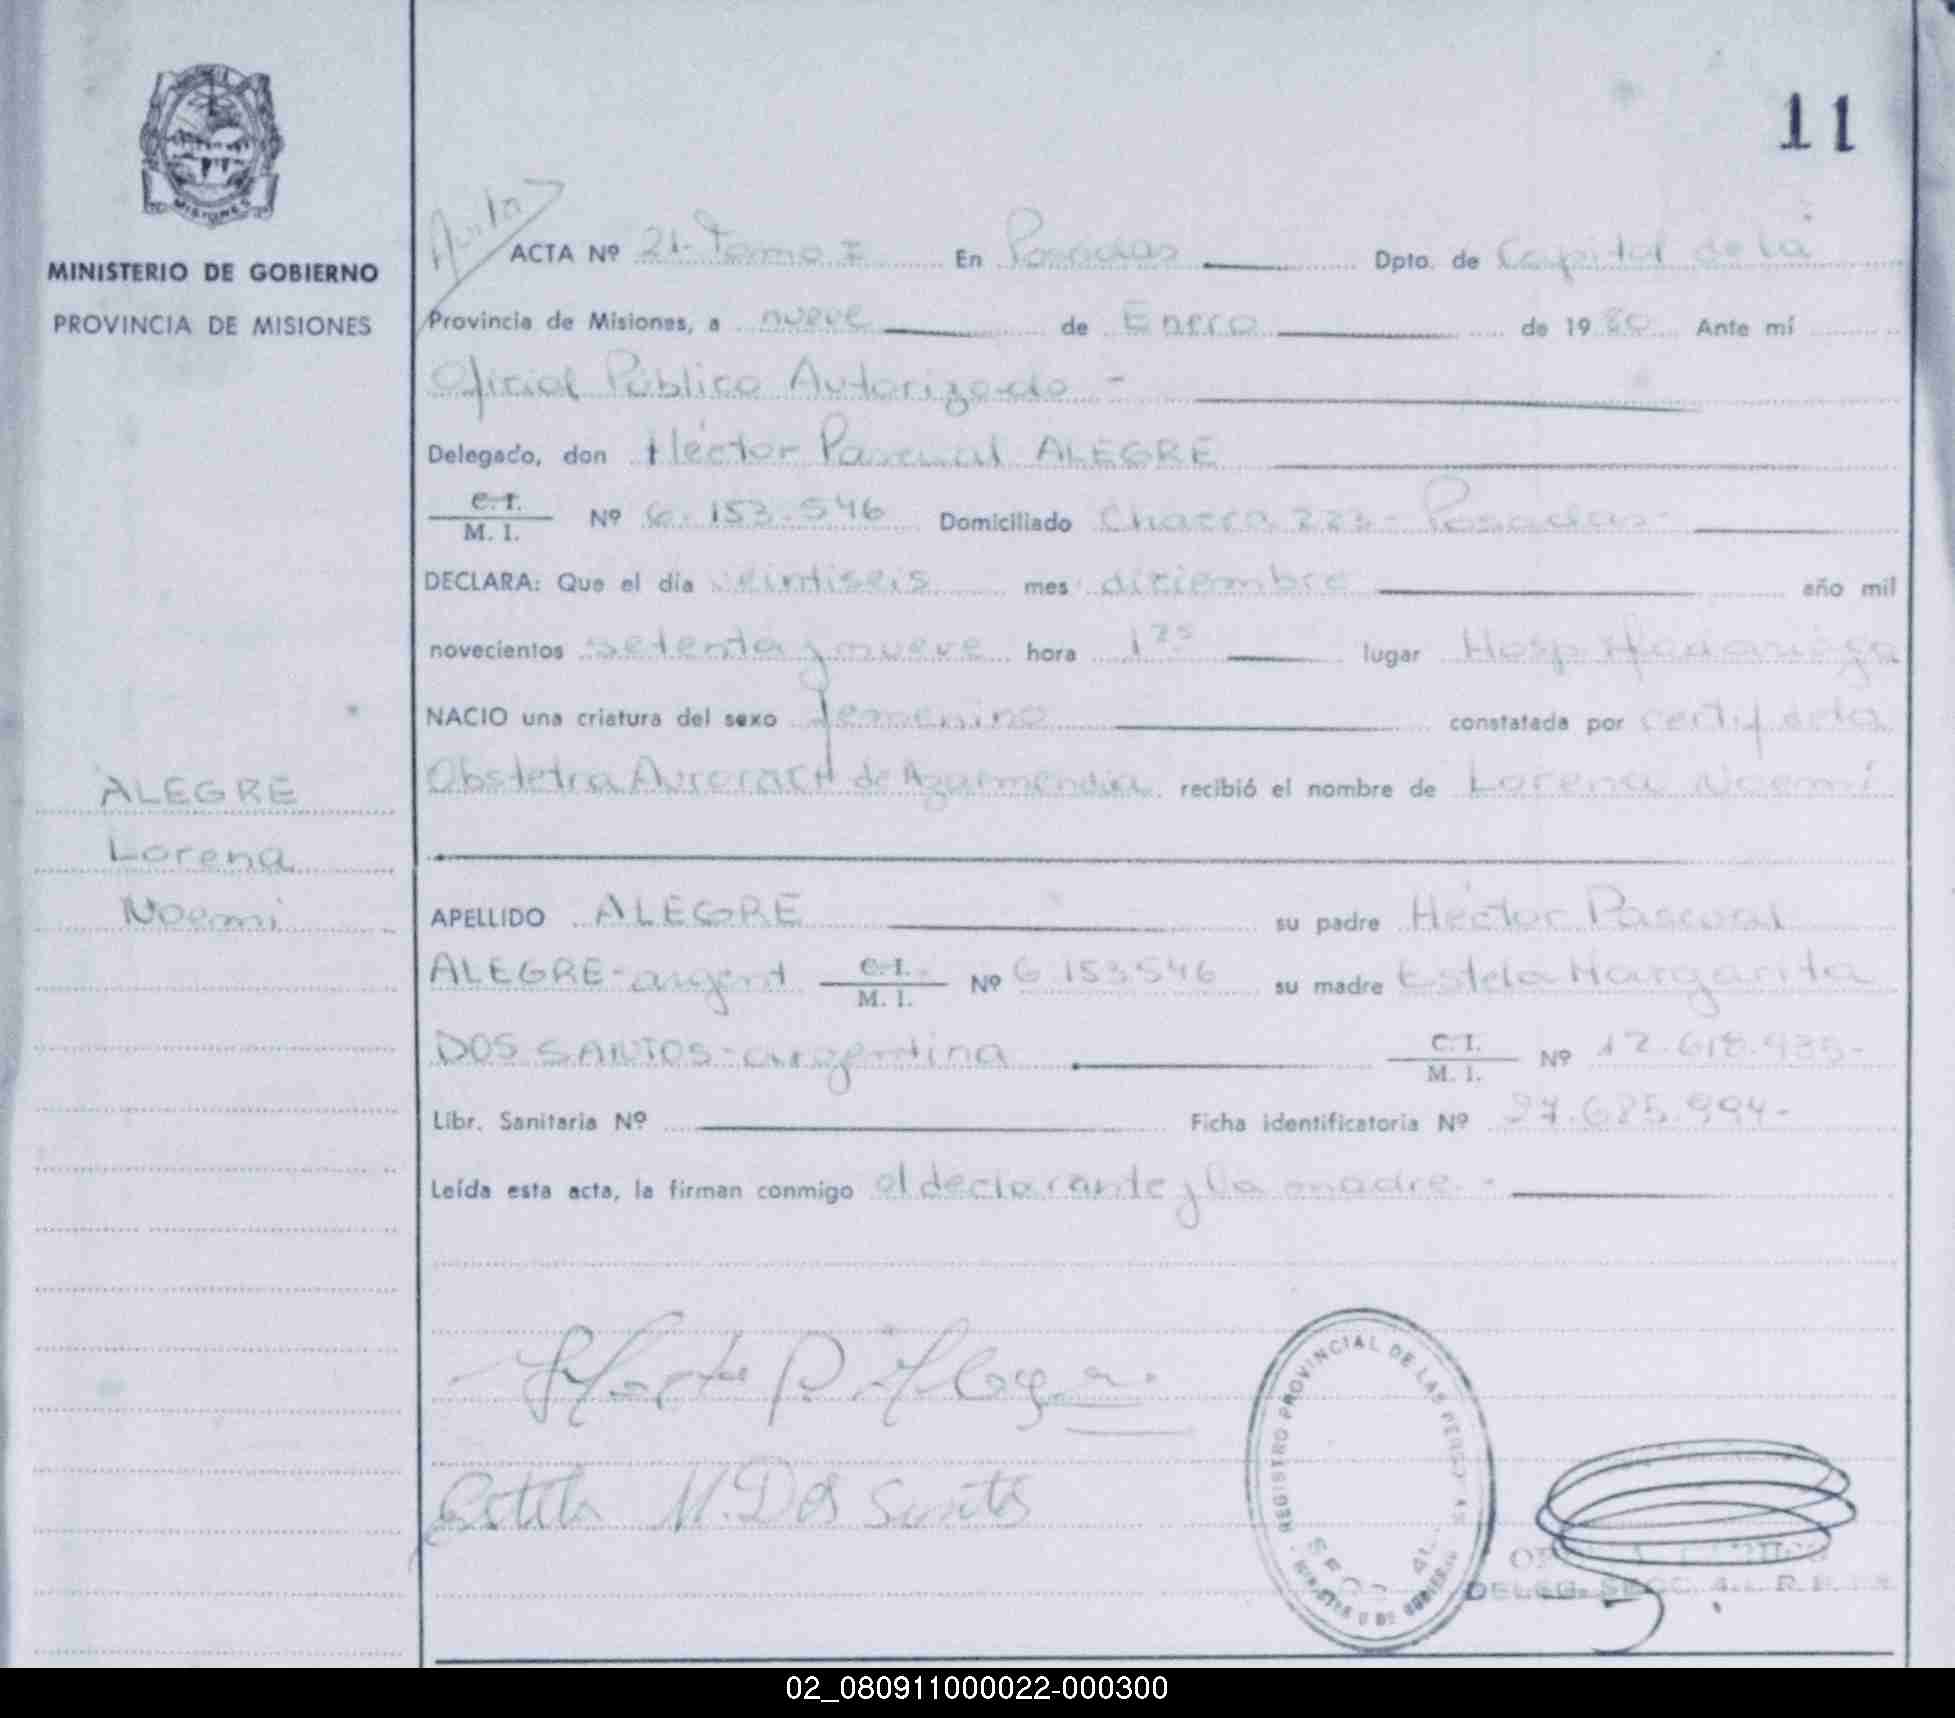 11
MISIONES
MINISTERIO DE GOBIERNO
PROVINCIA DE MISIONES
ALEGRE
Lorena
Noemi
ACTA Nº 21- Tomo I En Posadas Dpto. de Capital de la
Provincia de Misiones, a nueve de Enero de 1980 Ante mí
Oficial Público Autorizado -
Delegado, don Héctor Pascual ALEGRE
C. I. / M. I. Nº 6.153.546 Domiciliado Chacra 223- Posadas-
DECLARA: Que el día veintiseis mes diciembre año mil
novecientos setenta y nueve hora 1 lugar Hosp Madariaga
NACIO una criatura del sexo femenino constatada por certif de la
Obstetra Aurora de Azarmendia recibió el nombre de Lorena Noemí
APELLIDO ALEGRE su padre Héctor Pascual
ALEGRE-argent C. I. / M. I. Nº 6.153546 su madre Estela Margarita
DOS SANTOS-argentina C. I. / M. I. Nº 12.618.435-
Libr. Sanitaria Nº Ficha identificatoria Nº 27.685.994-
Leída esta acta, la firman conmigo el declarante y la madre.-
Estela M. Dos Santos
REGISTRO PROVINCIAL DE LAS
DELEG. SECC. 4
02_080911000022-000300